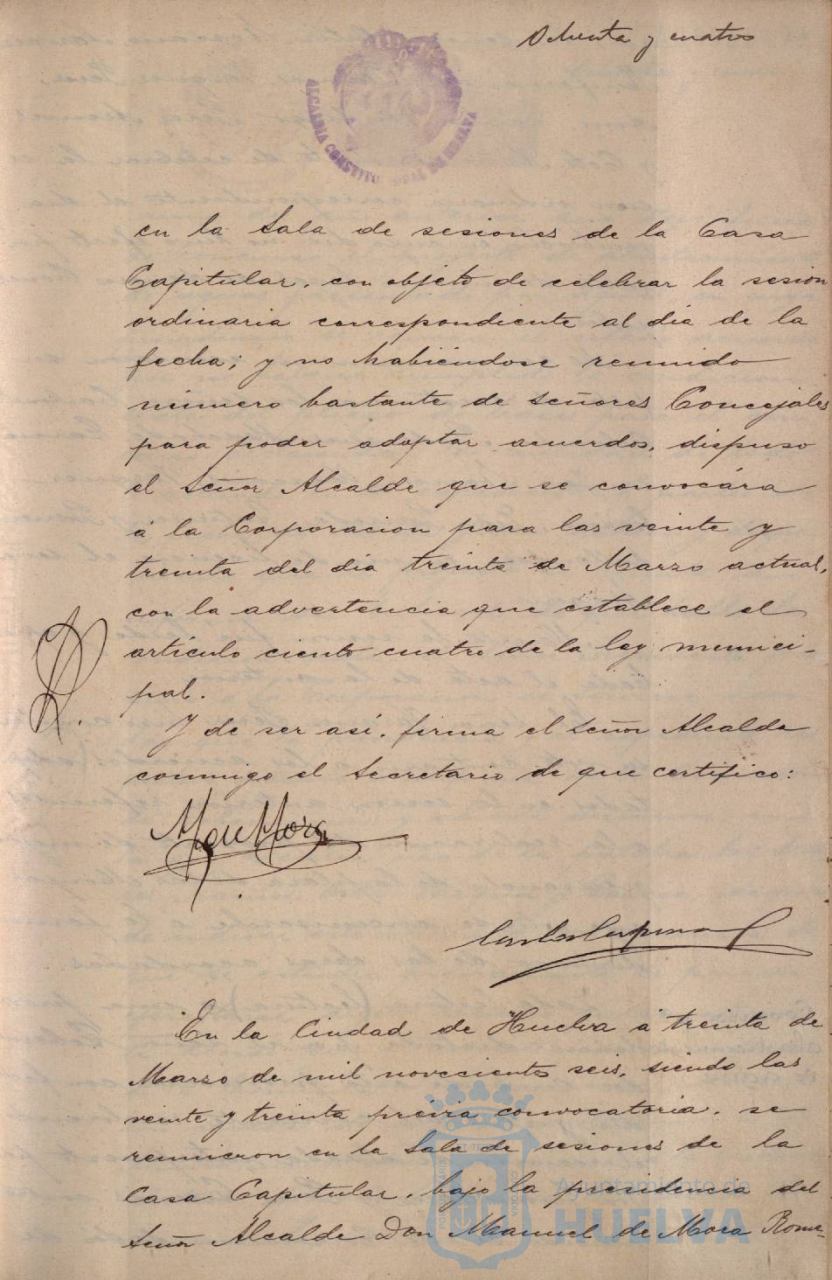 Ochenta y cuatro
ALCALDIA CONSTITUCIONAL DE HUELVA
en la Sala de sesiones de la Casa
Capitular, con objeto de celebrar la sesion
ordinaria correspondiente al día de la
fecha; y no habiéndose reunido
número bastante de Señores Concejales
para poder adoptar acuerdos, dispuso
el Señor Alcalde que se convocára
á la Corporacion para las veinte y
treinta del día treinta de Marzo actual,
con la advertencia que establece el
artículo ciento cuatro de la ley munici-
pal.
Y de ser así, firma el Señor Alcalde
conmigo el Secretario de que certifico:
M de Mora
En la Ciudad de Huelva á treinta de
Marzo de mil novecientos seis, siendo las
veinte y treinta previa convocatoria, se
reunieron en la Sala de sesiones de la
Casa Capitular, bajo la presidencia del
Señor Alcalde Don Manuel de Mora Rome-
Ayuntamiento de
HUELVA